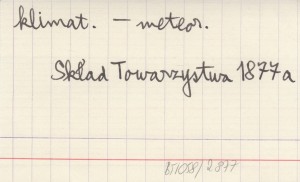 klimat. – meteor.
Skład Towarzystwa 1877a